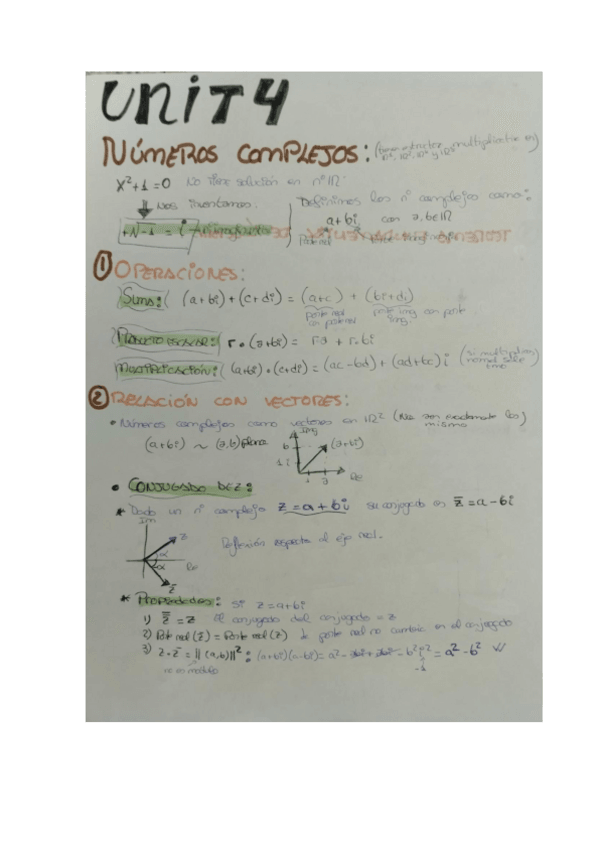 UNIT 4
NÚMEROS COMPLEJOS: ( multiplicativa en
x²+1=0 No tiene solución en nº IR
Nos inventamos. Definimos los nº complejos como:
a+bi, con a,b∈IR
+√-1 = i
Parte real
① OPERACIONES:
SUMA: (a+bi)+(c+di) = (a+c) + (bi+di)
parte real con parte real parte img con parte img.
PRODUCTO ESCALAR: r·(a+bi) = ra + r·bi
MULTIPLICACIÓN: (a+bi)·(c+di)=(ac-bd)+(ad+bc)i (si multiplicas normal sale
② RELACIÓN CON VECTORES:
• Números complejos como vectores en IR² (No son exactamente los mismo)
(a+bi) ~ (a,b) plano
Img
b
(a+bi)
1i
1
Re
• CONJUGADO DE Z:
* Dado un nº complejo z=a+bi su conjugado es z̄=a-bi
Im
z
α
α
Re
z̄
Reflexión respecto al eje real.
* Propiedades: Si z=a+bi
1) z̿ = z El conjugado del conjugado = z
2) Part real(z̄) = Part real(z) la parte real no cambia en el conjugado
3) z·z̄ = ||(a,b)||²: (a+bi)(a-bi)= a² - abi + abi - b²i² = a² - b²
-1